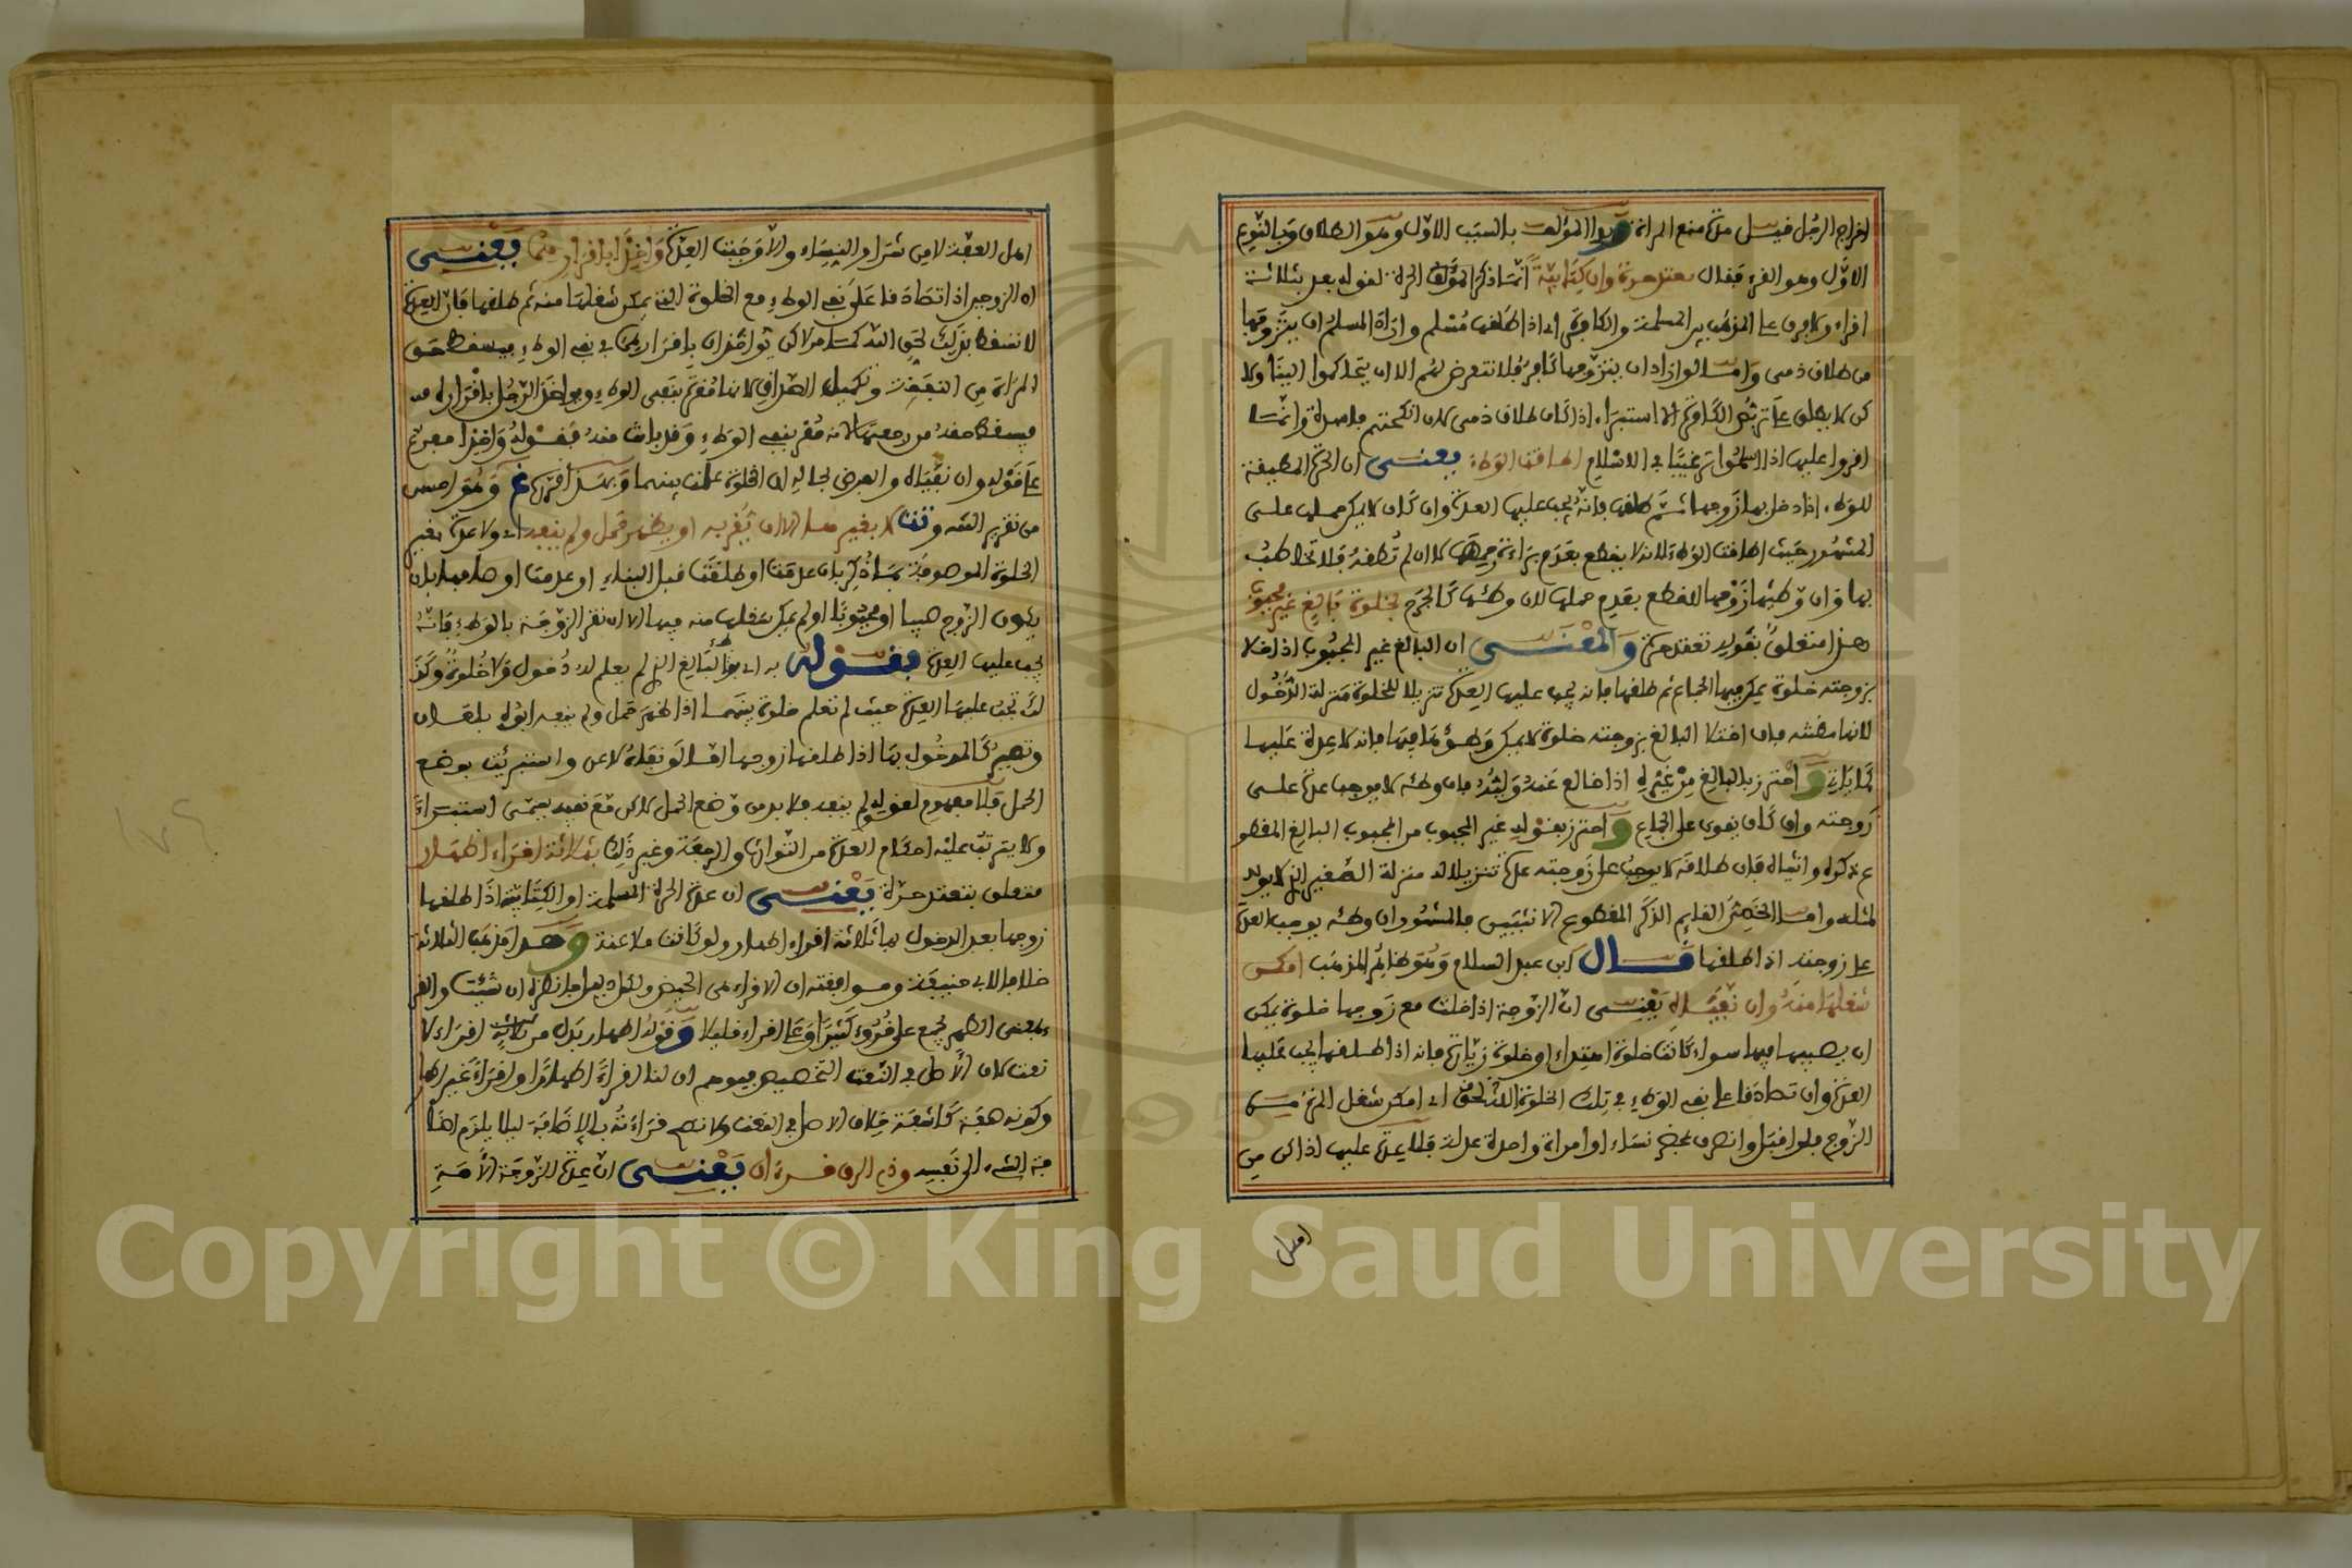 اخراج الرجل فيسل مدة منع المراة وبدا المؤلف بالسبب الاول وهو الطلاق وبالنوع
الاول وهو الفرء ففال تعتد حرة وان كتابية انما ذكر المؤلف الحرة لفوله بعد بثلاثة
افراء ولا فرق على المذهب بين المسلمة والكافرة اي اذا طلفها مسلم واراد المسلم ان يتزوجها
من طلاق ذمي واما لو اراد ان يتزوجها كافر فلا نتعرض لهم الا ان يتحاكموا الينا ولا
كن لا يطلق على تربص الكافرة الا استبراء اذا كان طلاق ذمي لان انكحتهم فاسدة وانما
افروا عليها اذا اسلموا ترغيبا في الاسلام اطافت الوطء يعني ان الحرة المطيفة
للوطء اذا دخل بها زوجها ثم طلفها فانه يجب عليها العدة وان كان لا يمكن حملها على
المشهور حيث اطافت الوطء لانه لا يفطع بعدم براءة رحمها لا ان لم تطفه فلا تخاطب
بها وان وطئها زوجها للفطع بعدم حملها لان وطئها كالجرح بخلوة بالغ غير مجبوب
هذا متعلق بفوله تعتد حرة والمعنى ان البالغ غير المجبوب اذا خلا
بزوجته خلوة يمكن فيها الجماع ثم طلفها فانه يجب عليها العدة تنزيلا للخلوة منزلة الدخول
لانها مظنته فان اختلا البالغ بزوجته خلوة لا يمكن وطؤها فيها فانه لا عدة عليها
كما ياتي واحترز بالبالغ من غيره اذا خالع عنه وليه فان وطئه لا يوجب عدة على
زوجته وان كان يفوى على الجماع واحترز بفوله غير المجبوب من المجبوب البالغ المفطو
ع ذكره وانثياه فان طلافه لا يوجب على زوجته عدة تنزيلا له منزلة الصغير الذي لا يولد
لمثله واما الخصي الفايم الذكر المفطوع الانثيين فالمشهور ان وطئه يوجب العدة
على زوجته اذا طلفها فال ابن عبد السلام وهو ظاهر المذهب امكن
شغلها منه وان نفياه يعني ان الزوجة اذا خلت مع زوجها خلوة يمكن
ان يصيبها فيها سواء كانت خلوة اهتداء او خلوة زيارة فانه اذا طلفها يجب عليها
العدة وان تصادفا على نفي الوطء في تلك الخلوة لانه لحق الله اي امكن شغل المرة من
الزوج فلو افبل وانصرف بمحضر نساء او امراة واحدة عدلة فلا عدة عليها اذا كن من
اهل
اهل العفة لا من شرار النساء والا وجبت العدة واخذا بافرارهما يعني
ان الزوجين اذا تصادفا على نفي الوطء مع الخلوة التي يمكن شغلها منه ثم طلفها فان العدة
لا تسفط بذلك لحق الله كما مر لاكن يؤاخذان بافرارهما في نفي الوطء فيسفط حق
المراة من النففة وتكميل الصداق لانها مفرة بنفي الوطء ويواخذ الرجل بافراره فد
فيسفط حفه من رجعتها لانه مفر بنفي الوطء وفد بانت منه ففوله واخذا مفرع
على فوله وان نفياه والفرض بحاله ان الخلوة علمت بينهما وبهذا فررها غ وهو احسن
من تفرير الشه وتت لا بغيرها الا ان تفر به او يظهر حمل ولم ينفه اي ولا عدة بغير
الخلوة الموصوفة بما ذكر بان عدمت او طلفت فبل البناء او عدمت اوصافها بان
يكون الزوج صبيا او مجبوبا او لم يمكن شغلها منه فيها الا ان تفر الزوجة بالوطء فانه
يجب عليها العدة بفوله به اي بوطء البالغ الذي لم يعلم له دخول ولا خلوة وكذ
لك تجب عليها العدة حيث لم تعلم خلوة بينهما اذا ظهر حمل ولم ينفه ابوه بلعان
وتصير كالمدخول بها اذا طلفها زوجها اما لو نفاه لاعن واستبرئت بوضع
الحمل فلا مفهوم لفوله ولم ينفه فلا بد من وضع الحمل لاكن مع نفيه يسمى استبراء
ولا يترتب عليه احكام العدة من التوارث والرجعة وغير ذلك بثلاثة افراء اطهار
متعلق بتعتد حرة يعني ان عدة الحرة المسلمة او الكتابية اذا طلفها
زوجها بعد الدخول بها ثلاثة افراء اطهار ولو كانت ملاعنة وهذا مذهب الثلاثة
خلافا لابي حنيفة وموافيه ان الافراء هي الحيض ولكل دليل فانظره ان شئت والفر
ء بمعنى الطهر يجمع على فروء كثيرا وعلى افراء فليلا وفوله اطهار بدل من ثلاثة افراء لا
نعت لان الاصل في النعت التخصيص فيوهم ان لنا افراء اطهارا وافراء غيرها
وكونه صفة كاشفة خلاف الاصل في النعت ولا تصح فراءته بالاضافة ليلا يلزم اضا
فة الشيء الى نفسه وذي الرق فرءان يعني ان عدة الزوجة الامة